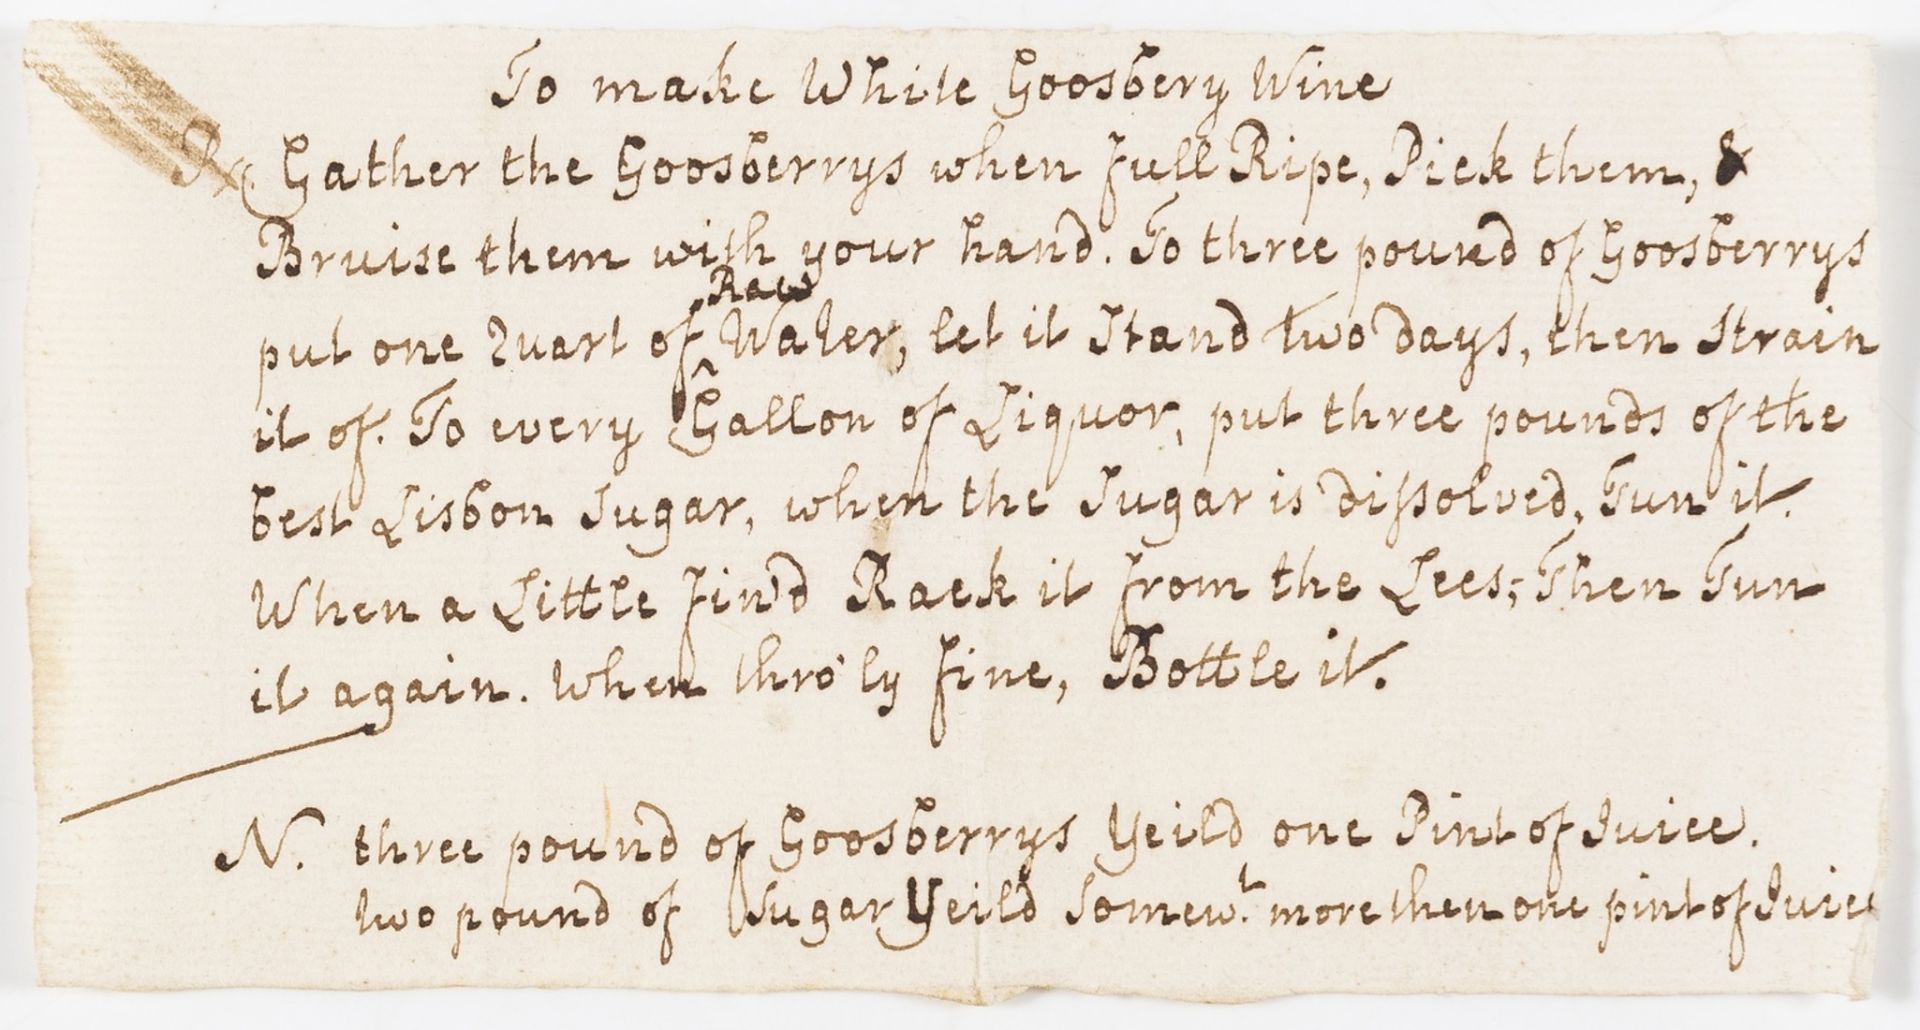 To make White Goosbery Wine
Rx Gather the Goosberrys when full Ripe, Pick them, &
Bruise them with your hand. To three pound of Goosberrys
Raw
put one Quart of ^ Water, let it Stand two days, then Strain
it of. To every Gallon of Liquor, put three pounds of the
best Lisbon Sugar, when the Sugar is dissolved, Tun it.
When a Little fin'd Rack it from the Lees; Then Tun
it again. When thro'ly fine, Bottle it.
N. three pound of Goosberrys Yeild one Pint of Juice.
two pound of Sugar Yeild Somew.t more then one pint of Juice